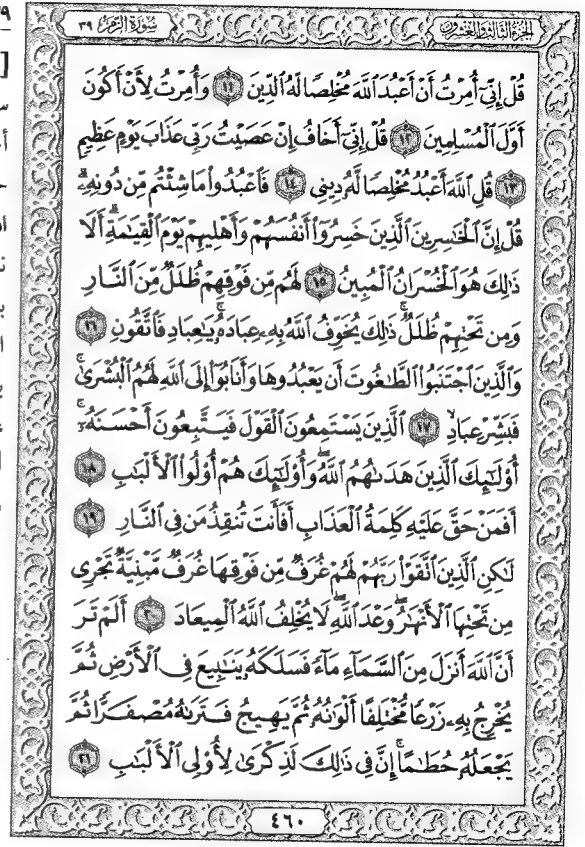 الجزء الثالث والعشرون
سورة الزمر ٣٩
قُلْ إِنِّىٓ أُمِرْتُ أَنْ أَعْبُدَ ٱللَّهَ مُخْلِصًا لَّهُ ٱلدِّينَ ١١ وَأُمِرْتُ لِأَنْ أَكُونَ
أَوَّلَ ٱلْمُسْلِمِينَ ١٢ قُلْ إِنِّىٓ أَخَافُ إِنْ عَصَيْتُ رَبِّى عَذَابَ يَوْمٍ عَظِيمٍ
١٣ قُلِ ٱللَّهَ أَعْبُدُ مُخْلِصًا لَّهُۥ دِينِى ١٤ فَٱعْبُدُوا۟ مَا شِئْتُم مِّن دُونِهِۦۗ
قُلْ إِنَّ ٱلْخَٰسِرِينَ ٱلَّذِينَ خَسِرُوٓا۟ أَنفُسَهُمْ وَأَهْلِيهِمْ يَوْمَ ٱلْقِيَٰمَةِۗ أَلَا
ذَٰلِكَ هُوَ ٱلْخُسْرَانُ ٱلْمُبِينُ ١٥ لَهُم مِّن فَوْقِهِمْ ظُلَلٌ مِّنَ ٱلنَّارِ
وَمِن تَحْتِهِمْ ظُلَلٌۚ ذَٰلِكَ يُخَوِّفُ ٱللَّهُ بِهِۦ عِبَادَهُۥۚ يَٰعِبَادِ فَٱتَّقُونِ ١٦
وَٱلَّذِينَ ٱجْتَنَبُوا۟ ٱلطَّٰغُوتَ أَن يَعْبُدُوهَا وَأَنَابُوٓا۟ إِلَى ٱللَّهِ لَهُمُ ٱلْبُشْرَىٰۚ
فَبَشِّرْ عِبَادِ ١٧ ٱلَّذِينَ يَسْتَمِعُونَ ٱلْقَوْلَ فَيَتَّبِعُونَ أَحْسَنَهُۥٓۚ
أُو۟لَٰٓئِكَ ٱلَّذِينَ هَدَىٰهُمُ ٱللَّهُۖ وَأُو۟لَٰٓئِكَ هُمْ أُو۟لُوا۟ ٱلْأَلْبَٰبِ ١٨
أَفَمَنْ حَقَّ عَلَيْهِ كَلِمَةُ ٱلْعَذَابِ أَفَأَنتَ تُنقِذُ مَن فِى ٱلنَّارِ ١٩
لَٰكِنِ ٱلَّذِينَ ٱتَّقَوْا۟ رَبَّهُمْ لَهُمْ غُرَفٌ مِّن فَوْقِهَا غُرَفٌ مَّبْنِيَّةٌ تَجْرِى
مِن تَحْتِهَا ٱلْأَنْهَٰرُۖ وَعْدَ ٱللَّهِۖ لَا يُخْلِفُ ٱللَّهُ ٱلْمِيعَادَ ٢٠ أَلَمْ تَرَ
أَنَّ ٱللَّهَ أَنزَلَ مِنَ ٱلسَّمَآءِ مَآءً فَسَلَكَهُۥ يَنَٰبِيعَ فِى ٱلْأَرْضِ ثُمَّ
يُخْرِجُ بِهِۦ زَرْعًا مُّخْتَلِفًا أَلْوَٰنُهُۥ ثُمَّ يَهِيجُ فَتَرَىٰهُ مُصْفَرًّا ثُمَّ
يَجْعَلُهُۥ حُطَٰمًاۚ إِنَّ فِى ذَٰلِكَ لَذِكْرَىٰ لِأُو۟لِى ٱلْأَلْبَٰبِ ٢١
٤٦٠